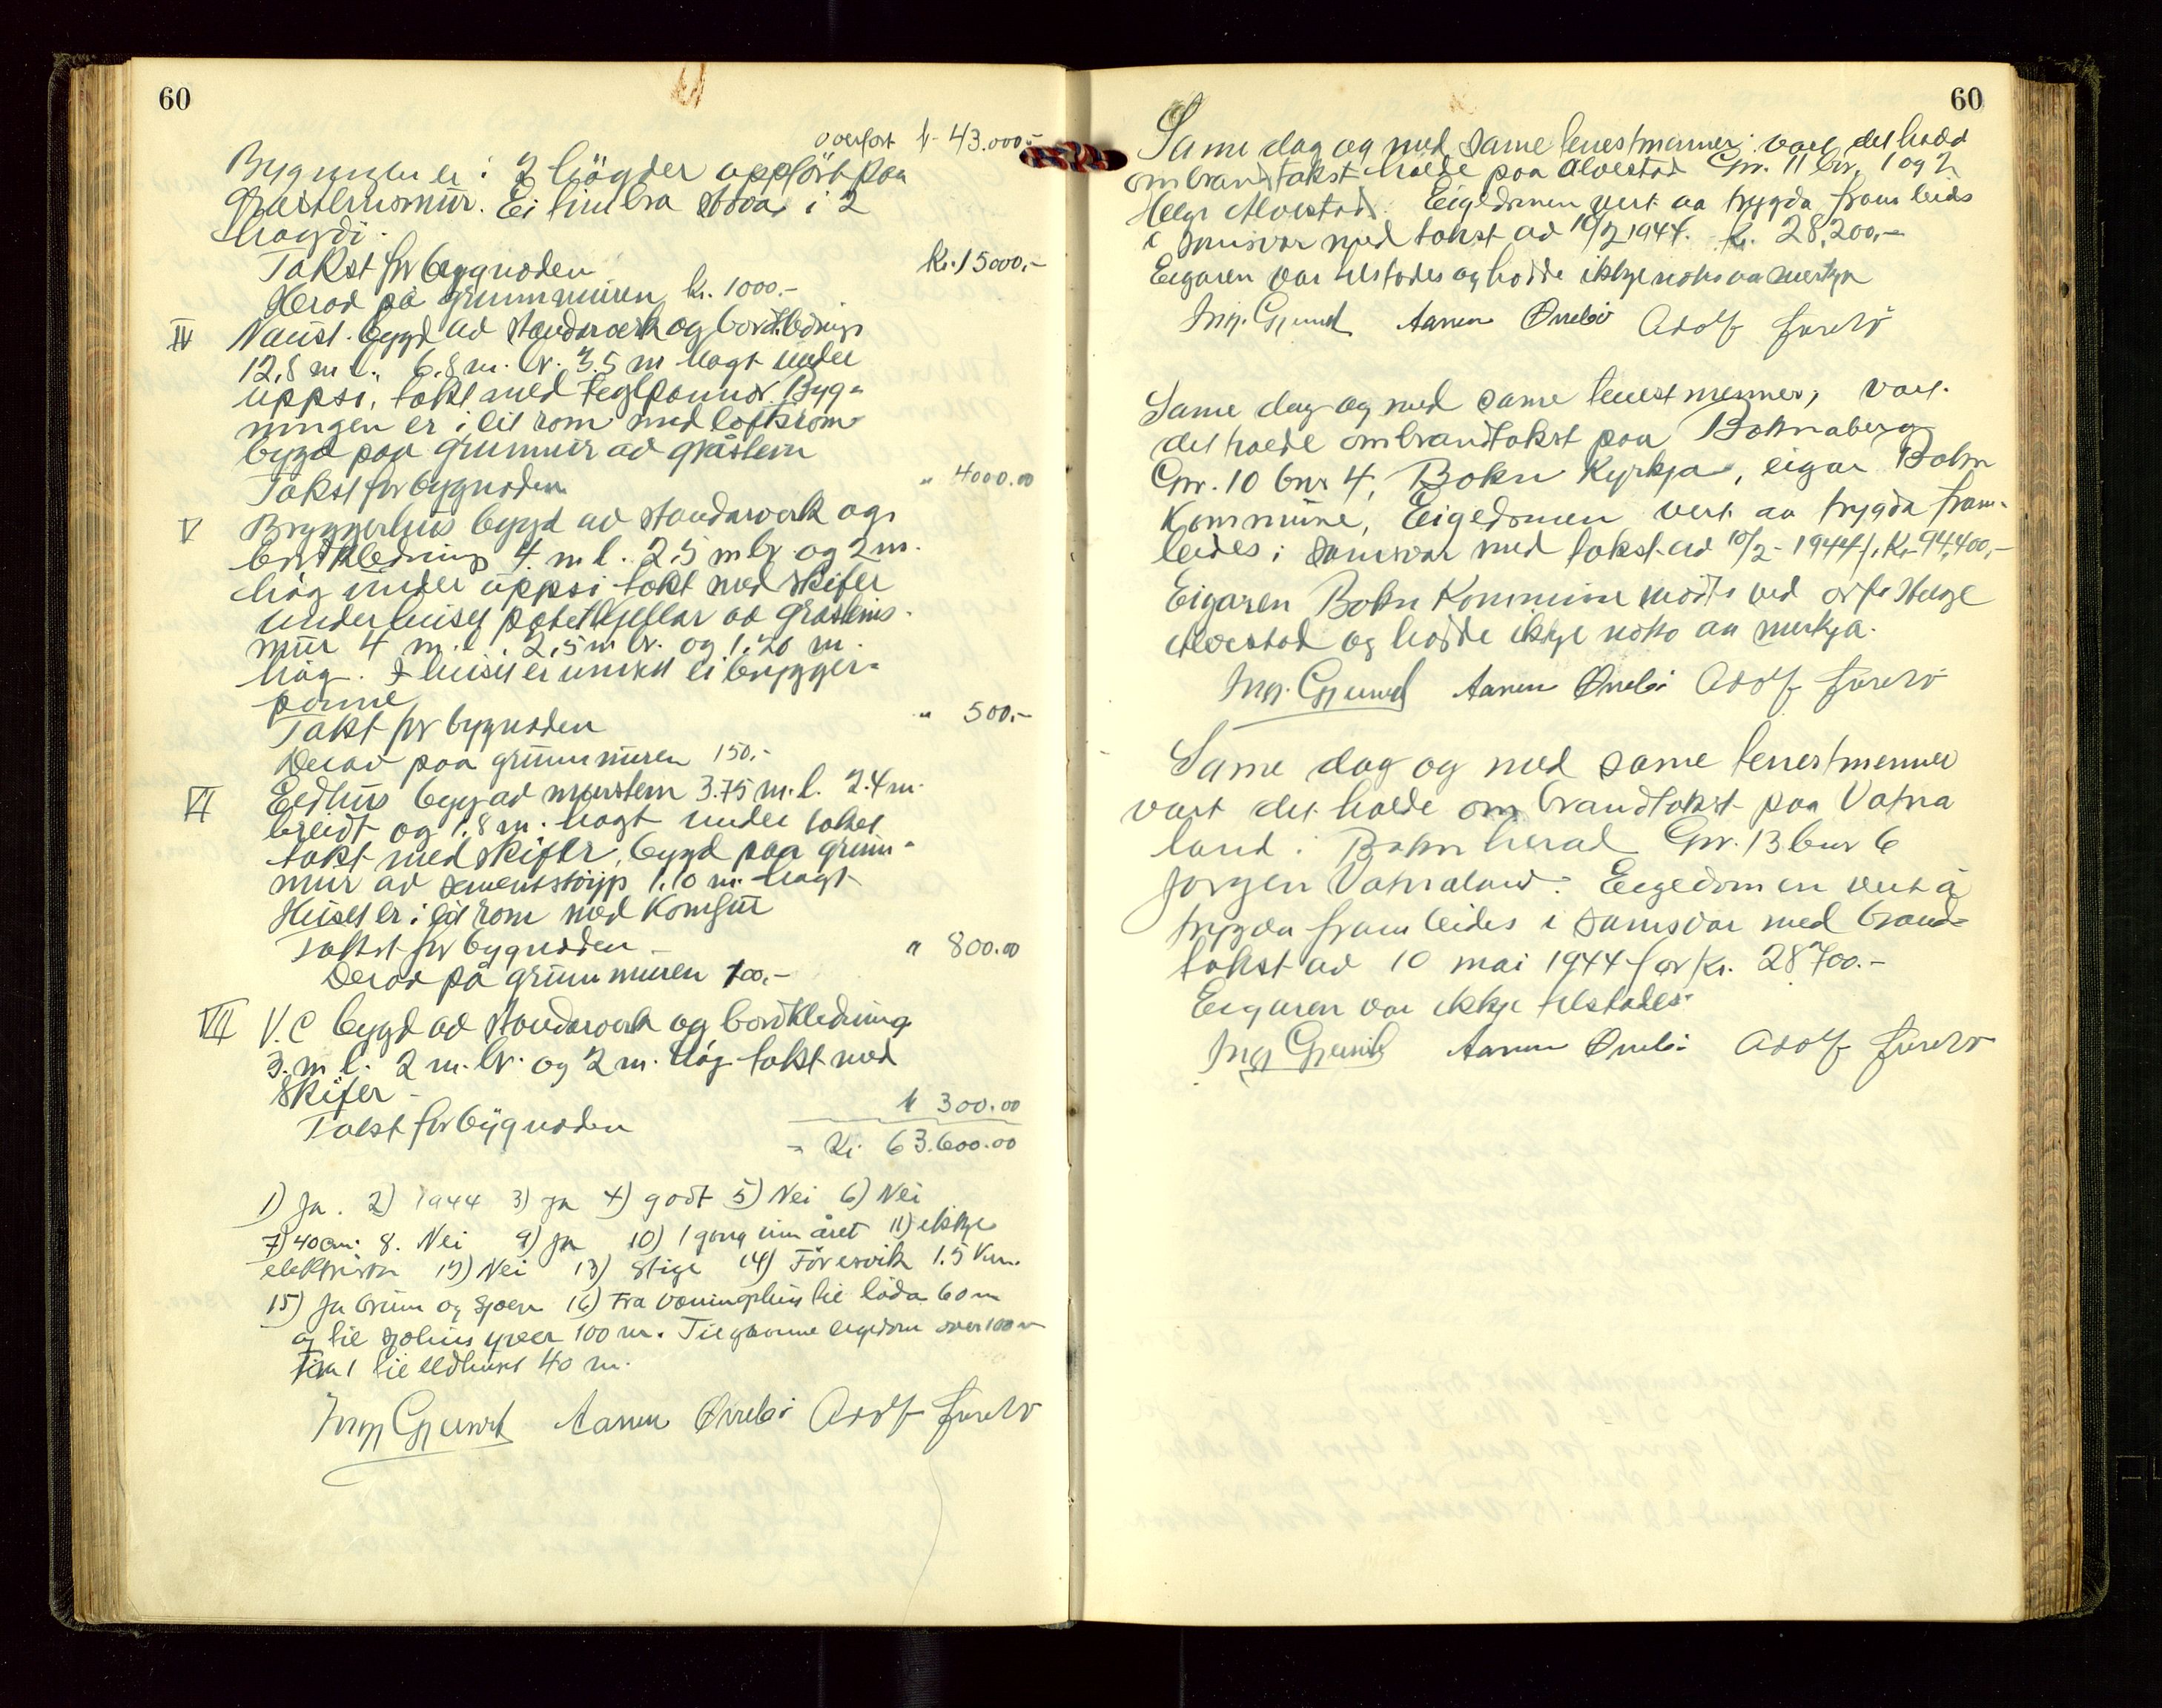 60
overført kr 43.000.-
Bygningen er i 2 högder oppfört paa
Graasteinsmur. Ei timbra stova i 2
høgdi.
Takst for bygnaden kr. 15000,-
Herav på grunnmuren kr. 1000.-
IV Naust. bygd av standarverk og bordkledning
12,8 m l. 6,8 m. br. 3,5 m høgt under
uppsi, takt med teglpannor. Byg-
ningen er i eit rom med loftsrom
bygd paa grunnmur av gråstein
Takst for bygnaden " 4000.00
V Bryggerhus bygd av standarverk og
bordkledning 4. m l. 2,5 m br og 2 m.
høg under uppsi takt med skifer
under huset potetkjellar av graasteins-
mur 4 m. l. 2,5 m br. og 1,20 m.
høg. I huset er innsett ei brygger-
panne
Takst for bygnaden " 500,-
Derav paa grunnmuren 150,-
VI Eldhus bygd av murstein 3.75 m. l. 2.4 m.
breidt og 1,8 m. høgt under taket
takt med skifer, bygd paa grunn-
mur av sementstøyp 1,10 m. høgt
Huset er i eit rom med Komfur
Takst for bygnaden " 800.00
Derav på grunnmuren 100,-
VII V.C bygd av standarverk og bordkledning
3. m l. 2 m. br. og 2 m. høg takt med
Skifer -
Takst for bygnaden " 300.00
= Kr. 63.600.00
1) Ja. 2) 1944 3) Ja 4) godt 5) Nei 6) Nei
7) 40 cm. 8. Nei 9) Ja 10) 1 gong um året 11) ikkje
elektrisk 12) Nei 13) Stige 14) Føresvik 1.5 Km.
15) Ja brunn og sjøen 16) Fra vaaningshus til löda 60 m
og til sjøhus yver 100 m. Til granne eigedom over 100 m
Fra 1 til eldhuset 40 m.
Ing. Gjerund Aanen Ørrebø Adolf
60
Same dag og med same tenestmenner vart det halde
ombrandtakst halde paa Alvestad Gnr. 11 bnr. 1 og 2
Helge Alvestad. Eigedomen vert aa trygda framleides
i samsvar med takst av 10/2 1944. Kr. 28,200,-
Eigaren var tilstades og hadde ikkje noko aa merkja
Ing. Gjerund Aanen Ørrebø Adolf
Same dag og med same tenestmenner, vart
det halde ombrandtakst paa Boknaberg
Gnr. 10 bnr 4, Bokn Kyrkja, eigar Bokn
Kommune, Eigedomen vert aa trygda fram-
leides i samsvar med takst av 10/2 - 1944 f. Kr 94,400,-
Eigaren Bokn Kommune møtte ved ordf. Helge
Alvestad og hadde ikkje noko aa merkja.
Ing. Gjerund Aanen Ørrebø Adolf
Same dag og med same tenestmenner
vart det halde om brandtakst paa Vatna
land i Bokn herad Gnr. 13 bnr 6
Jørgen Vatnaland. Eigedomen vert å
trygda framleides i samsvar med brand-
takst av 10 mai 1944 for kr. 28700.-
Eigaren var ikkje tilstades.
Ing Gjerund Aanen Ørrebø Adolf